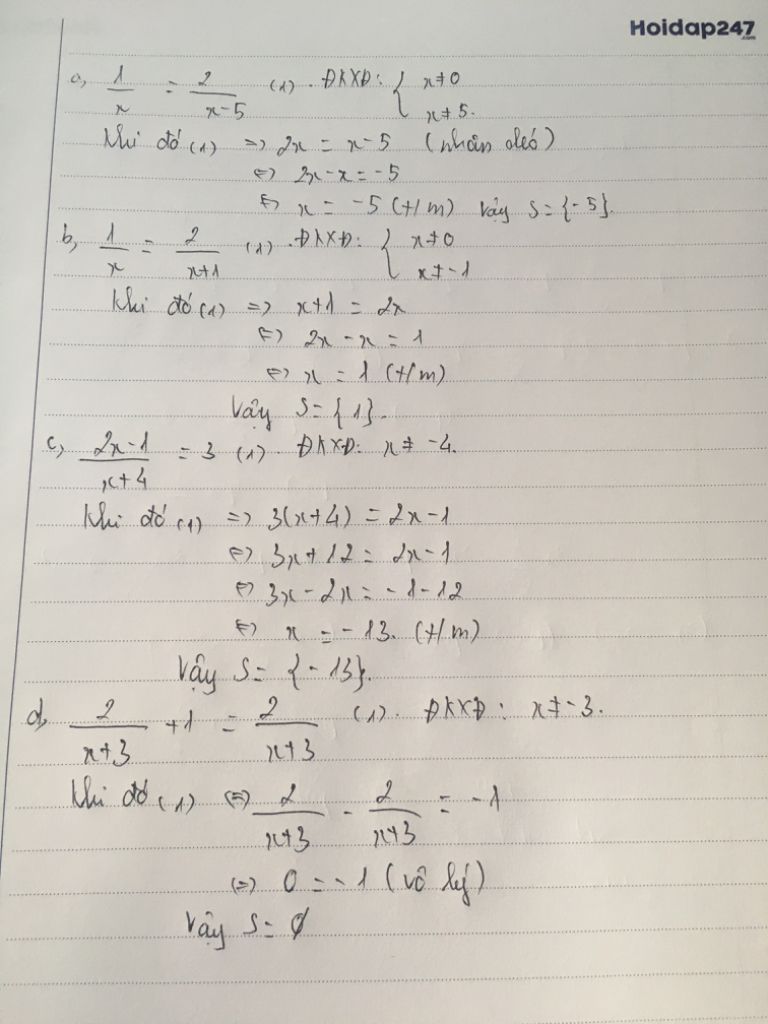 Hoidap247
.com
a, 1/x = 2/(x-5) (1). ĐKXĐ: { x≠0
x≠5.
Khi đó (1) => 2x = x-5 (nhân chéo)
<=> 2x-x = -5
<=> x = -5 (t/m) Vậy S={-5}.
b, 1/x = 2/(x+1) (1). ĐKXĐ: { x≠0
x≠-1
Khi đó (1) => x+1 = 2x
<=> 2x-x = 1
<=> x = 1 (t/m)
Vậy S={1}.
c, (2x-1)/(x+4) = 3 (1). ĐKXĐ: x≠-4.
Khi đó (1) => 3(x+4) = 2x-1
<=> 3x+12 = 2x-1
<=> 3x-2x = -1-12
<=> x = -13. (t/m)
Vậy S= {-13}.
d, 2/(x+3) +1 = 2/(x+3) (1). ĐKXĐ: x≠-3.
Khi đó (1) <=> 2/(x+3) - 2/(x+3) = -1
<=> 0 = -1 (vô lý)
Vậy S= ∅